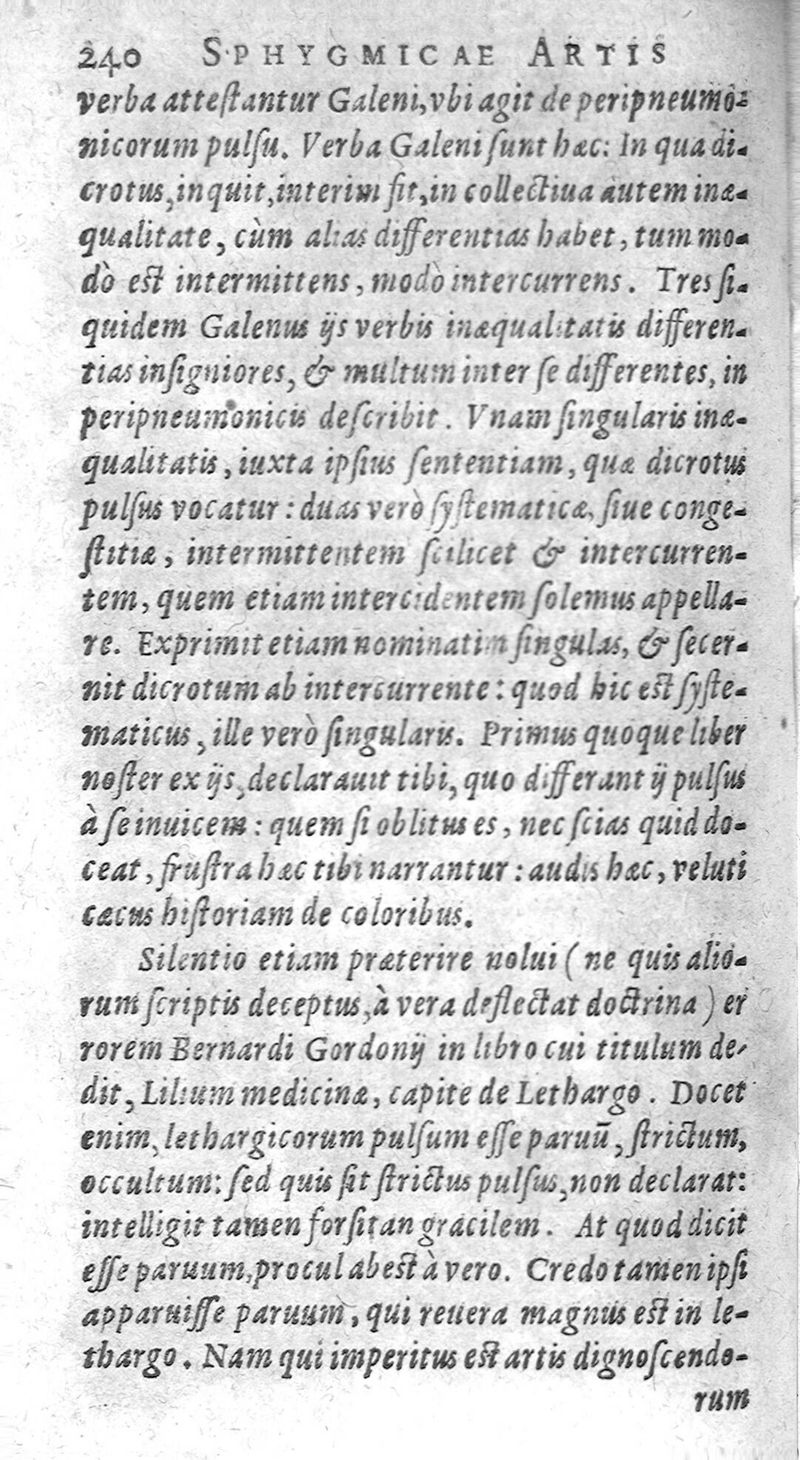 240 SPHYGMICAE ARTIS
verba attestantur Galeni, vbi agit de peripneumo-
nicorum pulsu. Verba Galeni sunt hæc: In qua di-
crotus, inquit, interim fit, in collectiua autem inæ-
qualitate, cùm alias differentias habet, tum mo-
dò est intermittens, modò intercurrens. Tres si-
quidem Galenus ijs verbis inæqualitatis differen-
tias insigniores, & multum inter se differentes, in
peripneumonicis describit. Vnam singularis inæ-
qualitatis, iuxta ipsius sententiam, quæ dicrotus
pulsus vocatur: duas verò systematicæ, siue conge-
stitiæ, intermittentem scilicet & intercurren-
tem, quem etiam intercidentem solemus appella-
re. Exprimit etiam nominatim singulas, & secer-
nit dicrotum ab intercurrente: quod hic est syste-
maticus, ille verò singularis. Primus quoque liber
noster ex ijs, declarauit tibi, quo differant ij pulsus
à se inuicem: quem si oblitus es, nec scias quid do-
ceat, frustra hæc tibi narrantur: audis hæc, veluti
cæcus historiam de coloribus.
Silentio etiam præterire nolui (ne quis alio-
rum scriptis deceptus, à vera deflectat doctrina) er
rorem Bernardi Gordonij in libro cui titulum de-
dit, Lilium medicinæ, capite de Lethargo. Docet
enim, lethargicorum pulsum esse paruū, strictum,
occultum: sed quis sit strictus pulsus, non declarat:
intelligit tamen forsitan gracilem. At quod dicit
esse paruum, procul abest à vero. Credo tamen ipsi
apparuisse paruum, qui reuera magnus est in le-
thargo. Nam qui imperitus est artis dignoscendo-
rum